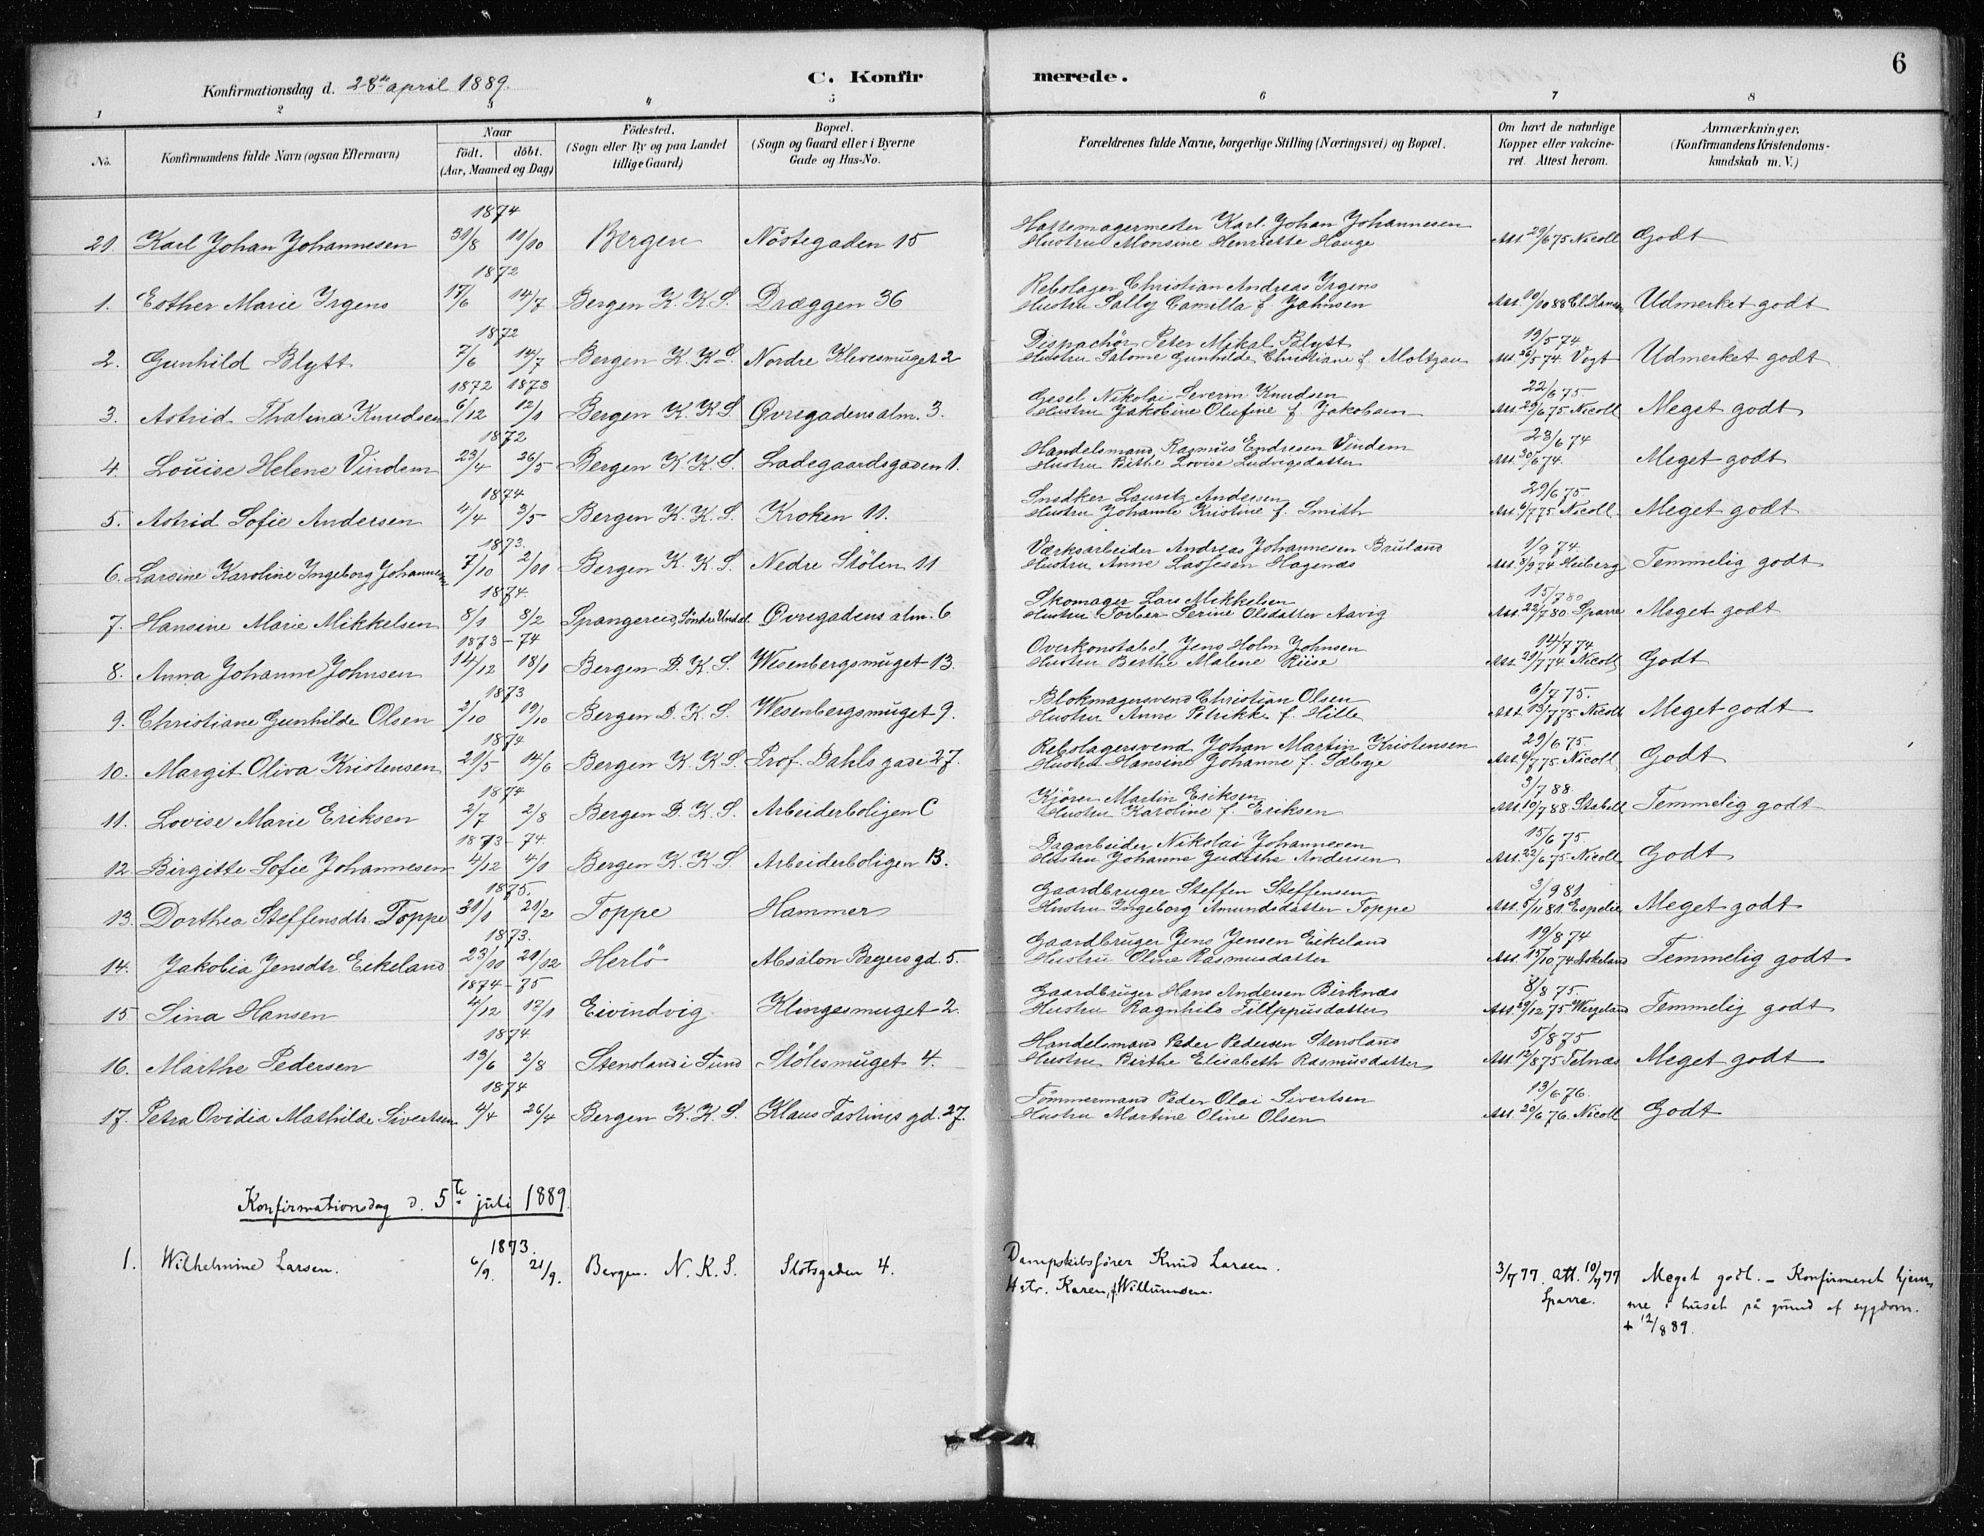 6
Konfirmationsdag d. 28de april 1889.
C. Konfirmerede.
1 2 3 4 5 6 7 8
No.
Konfirmandens fulde Navn (ogsaa Efternavn)
Naar
födt. döbt.
(Aar, Maaned og Dag)
Födested.
(Sogn eller By og paa Landet
tillige Gaard)
Bopæl.
(Sogn og Gaard eller i Byerne
Gade og Hus-No.
Forældrenes fulde Navne, borgerlige Stilling (Næringsvei) og Bopæl.
Om havt de naturlige
Kopper eller vakcine-
ret. Attest herom.
Anmærkninger.
(Konfirmandens Kristendoms-
kundskab m. V.)
1874
Hattemagermester Karl Johan Johannesen
21. Karl Johan Johannesen 31/8 11/10 Bergen Nöstegaden 15 Hustru Monsine Henriette Hauge Att 29/6 75 Nicoll Godt
1872
Rebslager Christian Andreas Irgens
1. Esther Marie Irgens 17/6 14/7 Bergen K. K. S. Dræggen 36 Hustru Sally Camilla f. Jahnsen Att. 10/10 88 Cl. Hansen Udmerket godt
1872
Dispachör Peter Mikal Blytt 19/5 74
2. Gunhild Blytt 7/6 14/7 Bergen K. K. S. Nordre Klevesmuget 2 Hustru Salome Gunhilde Christiane f. Moltzau Att. 26/5 74. Vogt Udmerket godt
1872 1873
Gesel Nikolai Severin Knudsen 22/6 75.
3. Astrid Thalina Knudsen 6/12 12/1 Bergen K. K. S. Øvregadens alm. 3. Hustru Jakobine Olufine f. Jakobsen Att. 29/6 75 Nicoll Meget godt
1872
Handelsmand Rasmus Endresen Vindem 23/6 74
4. Louise Helene Vindem 23/4 26/5 Bergen K. K. S. Ladegaardsgaden 1. Hustru Birthe Lovise Ludvigsdatter Att. 30/6 74. Meget godt
1874
Snedker Lauritz Andersen 29/6 75.
5. Astrid Sofie Andersen 4/4 3/5 Bergen K. K. S. Kroken 11. Hustru Johanne Kristine f. Smith Att. 6/7 75 Nicoll. Meget godt
1873.
Værksarbeider Andreas Johannesen Bruland 1/9 74.
6. Larsine Karoline Ingeborg Johannesen 7/10 2/11 Bergen K. K. S. Nedre Stölen 11 Hustru Anne Lassesen Hagenæs Att. 8/9 74 Heiberg Temmelig godt
1874
Skomager Lars Mikkelsen 15/7 80
7. Hansine Marie Mikkelsen 8/1 8/2 Spangereid, Söndre Undal. Øvregadens alm. 6 Hustru Torbør Serine Olsdatter Aavig Att. 22/7 80 Sparre Meget godt
1873-74
Overkonstabel Jens Holm Johnsen 14/7 74.
8. Anna Johanne Johnsen 14/12 18/1 Bergen D. K. S. Wesenbergsmuget 13. Hustru Berthe Malene Riise Att 21/7 74. Nicoll Godt
1873
Blokmagersvend Christian Olsen 6/7 75.
9. Christiane Gunhilde Olsen 2/10 19/10 Bergen D. K. S. Wesenbergsmuget 9. Hustru Anne Petrikke f. Hille Att. 13/7 75 Nicoll Meget godt
1874
Rebslagersvend Johan Martin Kristensen 29/6 75.
10. Margit Oliva Kristensen 21/5 14/6 Bergen K. K. S. Prof. Dahls gase 27. Hustru Hansine Johanne f. Sæbye Att. 6/7 75. Nicoll, Godt
1874
Kjörer Martin Eriksen 3/7 88
11. Lovise Marie Eriksen 2/7 2/8 Bergen D. K. S. Arbeiderboligen C Hustru Karoline f. Eriksen Att. 10/7 88. Stabell Temmelig godt
1873-74.
Dagarbeider Nikolai Johannesen 15/6 75
12. Birgitte Sofie Johannesen 4/12 4/1 Bergen K. K. S. Arbeiderboligen B. Hustru Johanne Judithe Andersen Att. 22/6 75. Nicoll Godt
1875.
Gaardbruger Steffen Steffensen 3/9 81.
13. Dorthea Steffensdtr. Toppe 31/1 21/2 Toppe Hammer Hustru Ingeborg Amundsdatter Toppe Att. 5/11 81. Espelie Meget godt
1873.
Gaardbruger Jens Jensen Eikeland 19/8 74
14. Jakobia Jensdtr. Eikeland 23/10 21/12 Herlö Absalon Beyers gd. 5. Hustru Oline Rasmusdatter Att. 15/10 74 Askeland Temmelig godt
1874-75
Gaardbruger Hans Andersen Birknæs 8/8 75.
15 Sina Hansen 4/12 12/1 Eivindvig Klingesmuget 2. Hustru Ragnhild Fillppusdatter Att. 29/12 75 Wergeland Temmelig godt
1874
Handelsmand Peder Pedersen Stensland 5/8 75
16. Marthe Pedersen 13/6 2/8 Stensland i Sund Stölesmuget 4. Hustru Birthe Elisabeth Rasmusdatter Att 12/8 75 Telnæs Meget godt
1874
Tömmermand Peder Olai Sivertsen 13/6 76.
17. Petra Ovidia Mathilde Sivertsen 4/4 26/4 Bergen K. K. S. Klaus Fastings gd. 27. Hustru Martine Oline Olsen Att. 20/6 76. Nicoll Godt
Konfirmationsdag d. 5te juli 1889.
1873.
1. Wilhelmine Larsen. 6/9. 21/9. Bergen. N. K. S. Slotsgaden 4. Dampskibsfører Knud Larsen. 3/7 77. Att. 10/7 77 Meget godt. - Konfirmeret hjem-
Hstr. Karen, f. Willumsen. Sparre. me i huset på grund af sygdom.
+ 12/8 89.